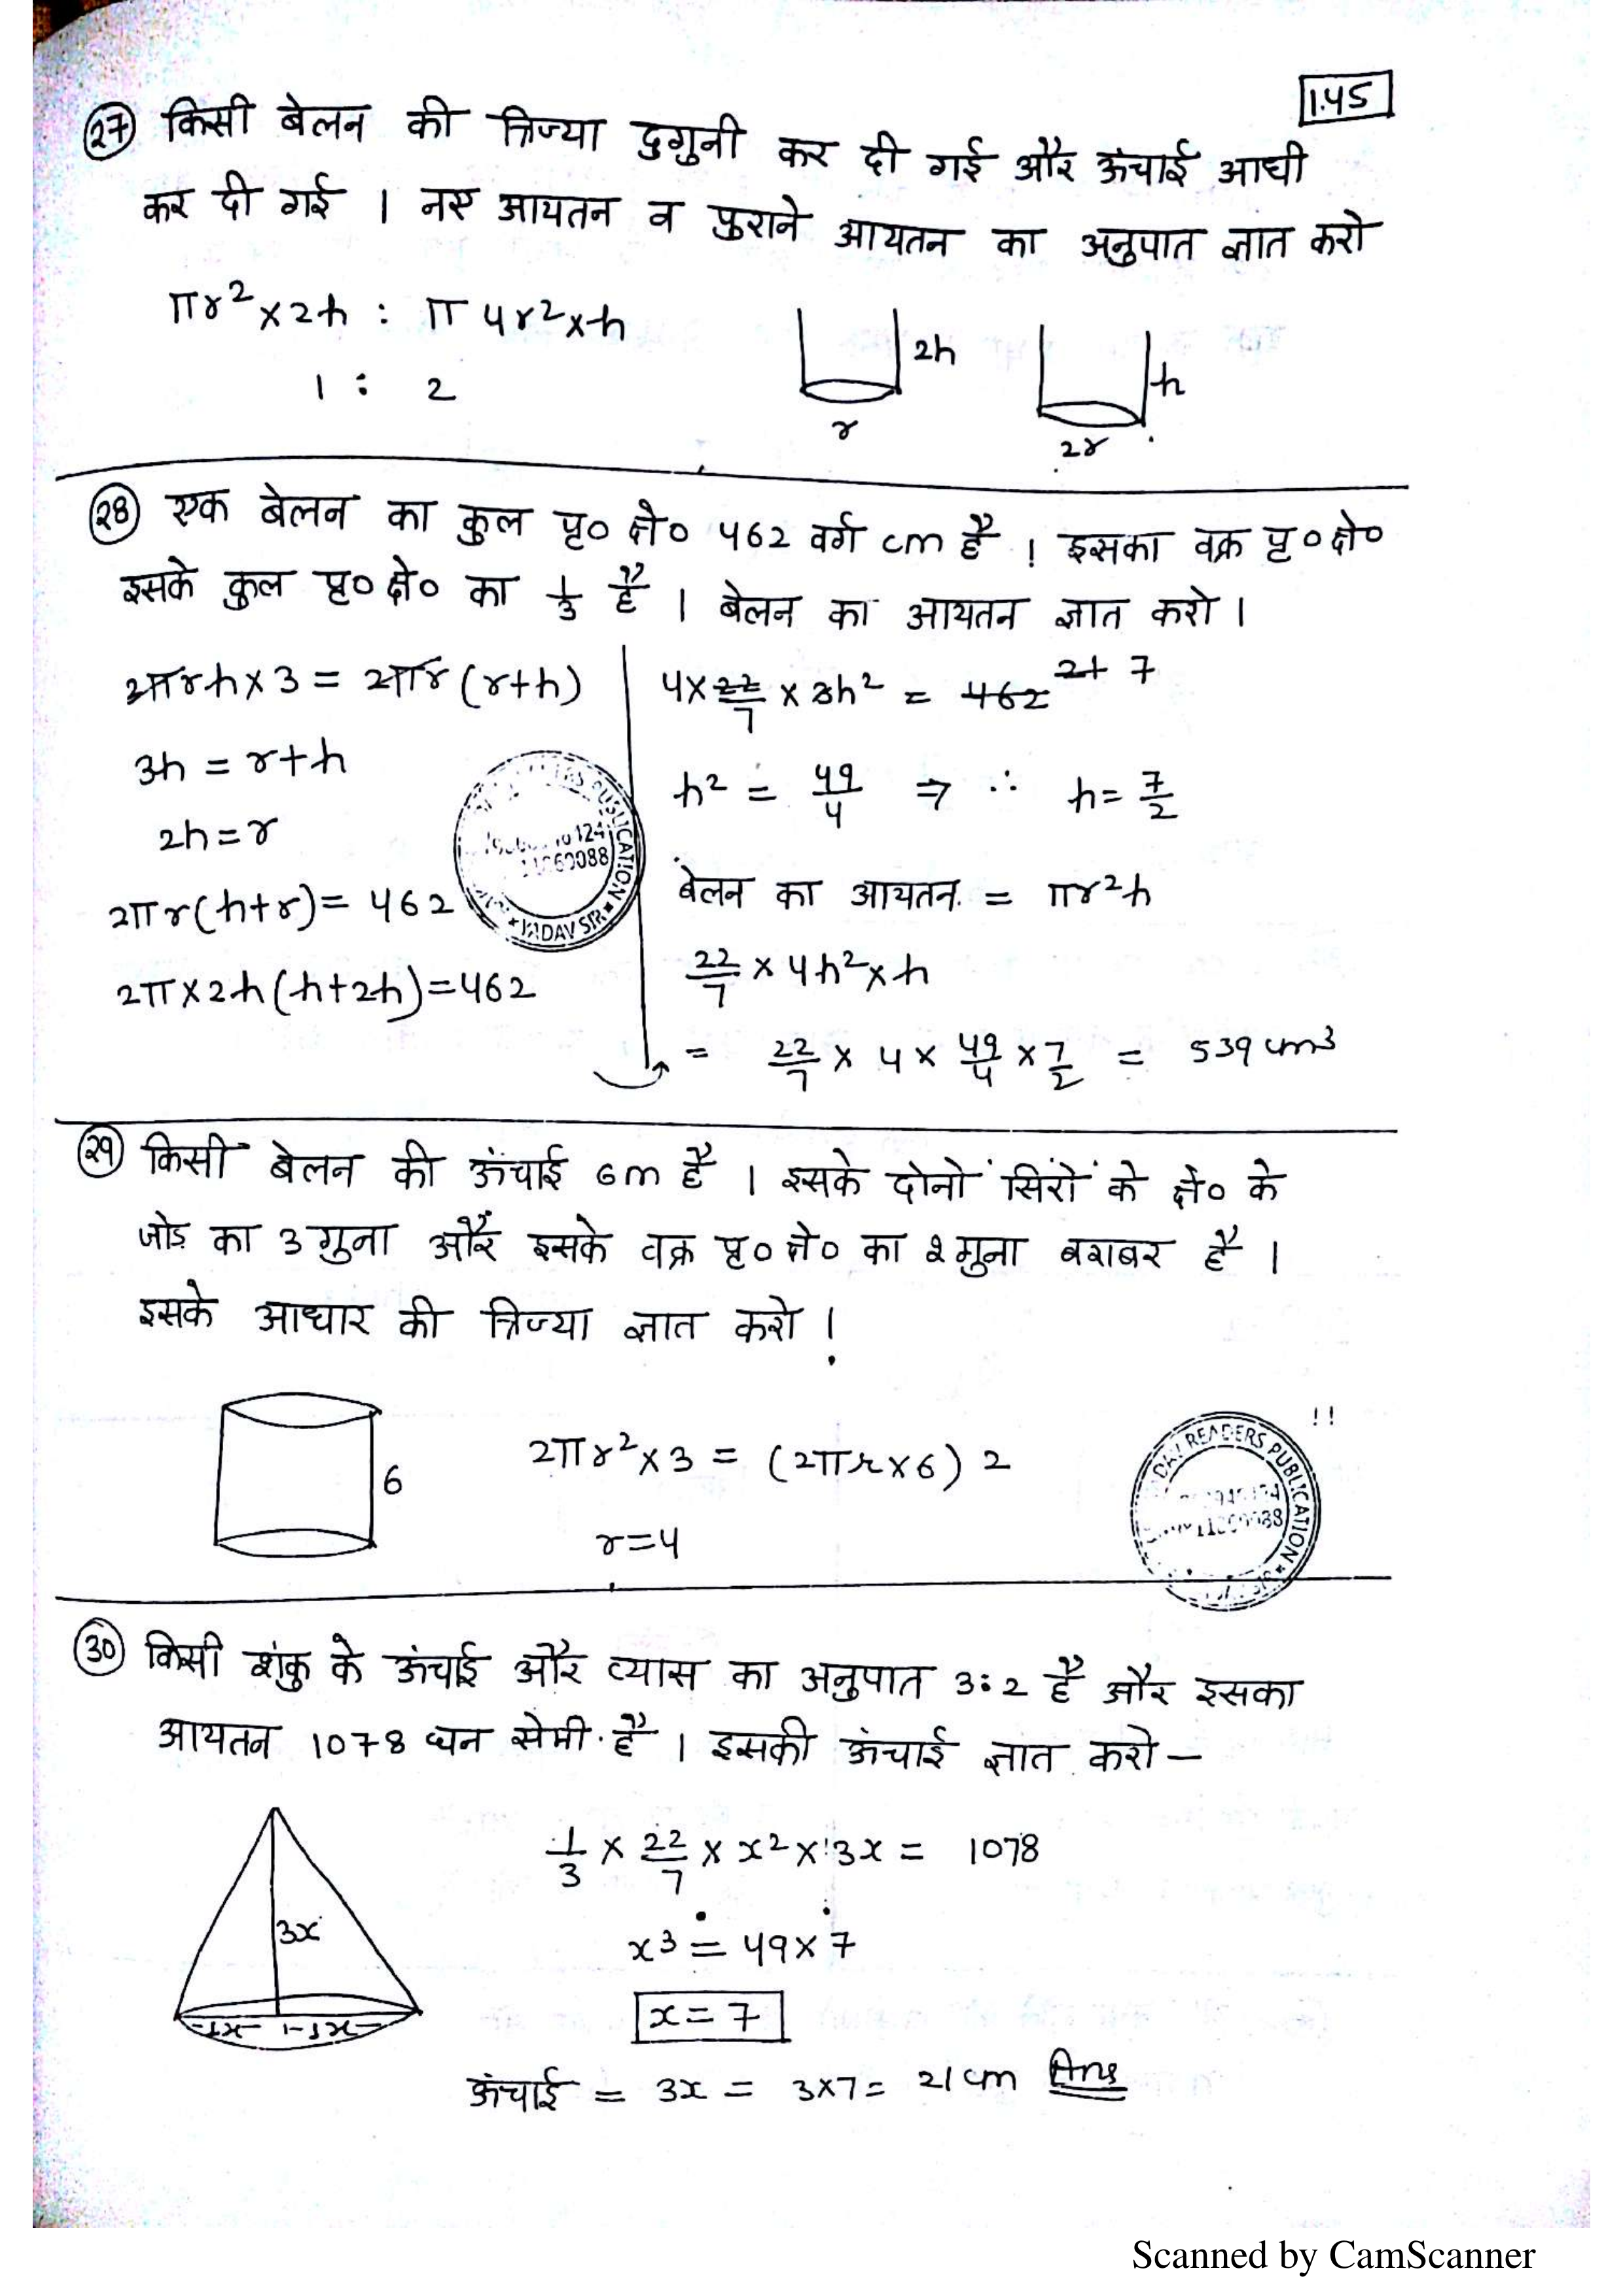 1.45
27 किसी बेलन की त्रिज्या दुगुनी कर दी गई और ऊंचाई आधी
कर दी गई । नए आयतन व पुराने आयतन का अनुपात ज्ञात करो
πr²×2h : π4r²×h
1 : 2
2h
r
h
2r
28 एक बेलन का कुल पृ० क्षे० 462 वर्ग cm है । इसका वक्र पृ० क्षे०
इसके कुल पृ० क्षे० का 1/3 है । बेलन का आयतन ज्ञात करो ।
2πrh×3 = 2πr(r+h)
3h = r+h
2h=r
2πr(h+r)= 462
2π×2h(h+2h)=462
4×22/7×3h² = 462 21 7
h² = 49/4 ⇒ ∴ h=7/2
बेलन का आयतन = πr²h
22/7×4h²×h
= 22/7×4×49/4×7/2 = 539 cm³
PUBLICATION
YADAV
29 किसी बेलन की ऊंचाई 6m है । इसके दोनों सिरों के क्षे० के
जोड़ का 3 गुना और इसके वक्र पृ० क्षे० का 2 गुना बराबर है ।
इसके आधार की त्रिज्या ज्ञात करो !
6
2πr²×3 = (2πr×6) 2
r=4
READERS PUBLICATION
30 किसी शंकु के ऊंचाई और व्यास का अनुपात 3:2 है और इसका
आयतन 1078 घन सेमी. है । इसकी ऊंचाई ज्ञात करो –
3x
1x 1x
1/3×22/7×x²×3x = 1078
x³ = 49×7
x=7
ऊंचाई = 3x = 3×7= 21cm Ans
Scanned by CamScanner